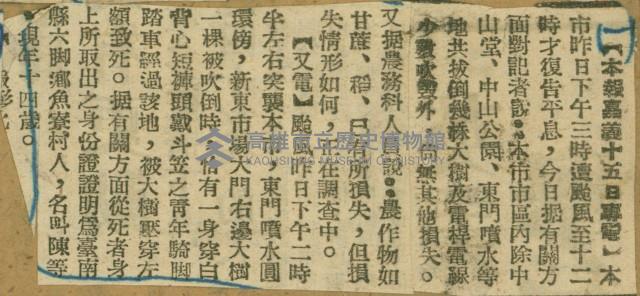 【本報嘉義十五日專電】本
市昨日下午三時遭颱風至十二
時才復告平息，今日据有關方
面對記者說：本市市區內除中
山堂、中山公園、東門噴水等
地共拔倒幾株大樹及電桿電線
少數吹斷外，並無其他損失。
又据農務科人員說：農作物如
甘蔗、稻、只有所損失，但損
失情形如何，正在調查中。
【又電】颱風昨日下午二時
半左右突襲本市，東門噴水圓
環傍，新東市場大門右邊大樹
一棵被吹倒時，恰有一身穿白
背心短褲頭戴斗笠之青年騎脚
踏車經過該地，被大樹壓穿左
額致死。据有關方面從死者身
上所取出之身份證證明爲臺南
縣六脚鄉魚寮村人，名叫陳等
，現年十四歲。
高雄市立歷史博物館
KAOHSIUNG MUSEUM OF HISTORY